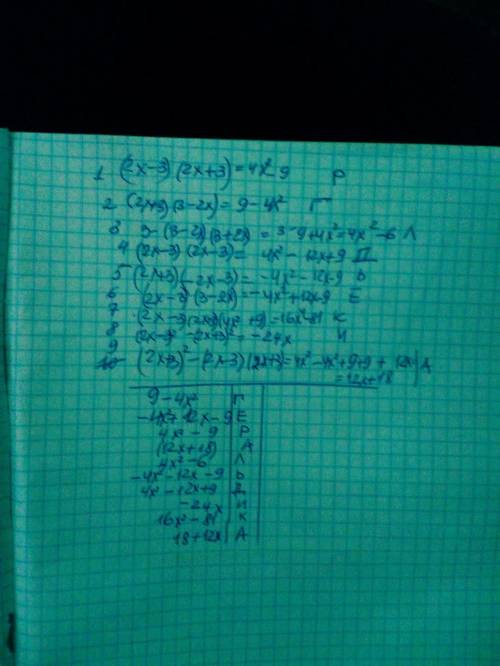 1 (2x-3)(2x+3)=4x²-9 Р
2 (2x+3)(3-2x)=9-4x² Г
3 3-(3-2x)(3+2x)=3-9+4x²=4x²-6 Л
4 (2x-3)(2x-3)=4x²-12x+9 Д
5 (2x+3)(-2x-3)=-4x²-12x-9 Ь
6 (2x-3)(3-2x)=-4x²+12x-9 Е
7 (2x-3)(2x+3)(4x²+9)=16x²-81 К
8 (2x-3)²-(2x+3)²=-24x И
9
10 (2x+3)²-(2x-3)(2x+3)=4x²-4x²+9+9+12x А
=12x+18
9-4x² Г
-4x²+12x-9 Е
4x²-9 Р
(12x+18) А
4x²-6 Л
-4x²-12x-9 Ь
4x²-12x+9 Д
-24x И
16x²-81 К
18+12x А